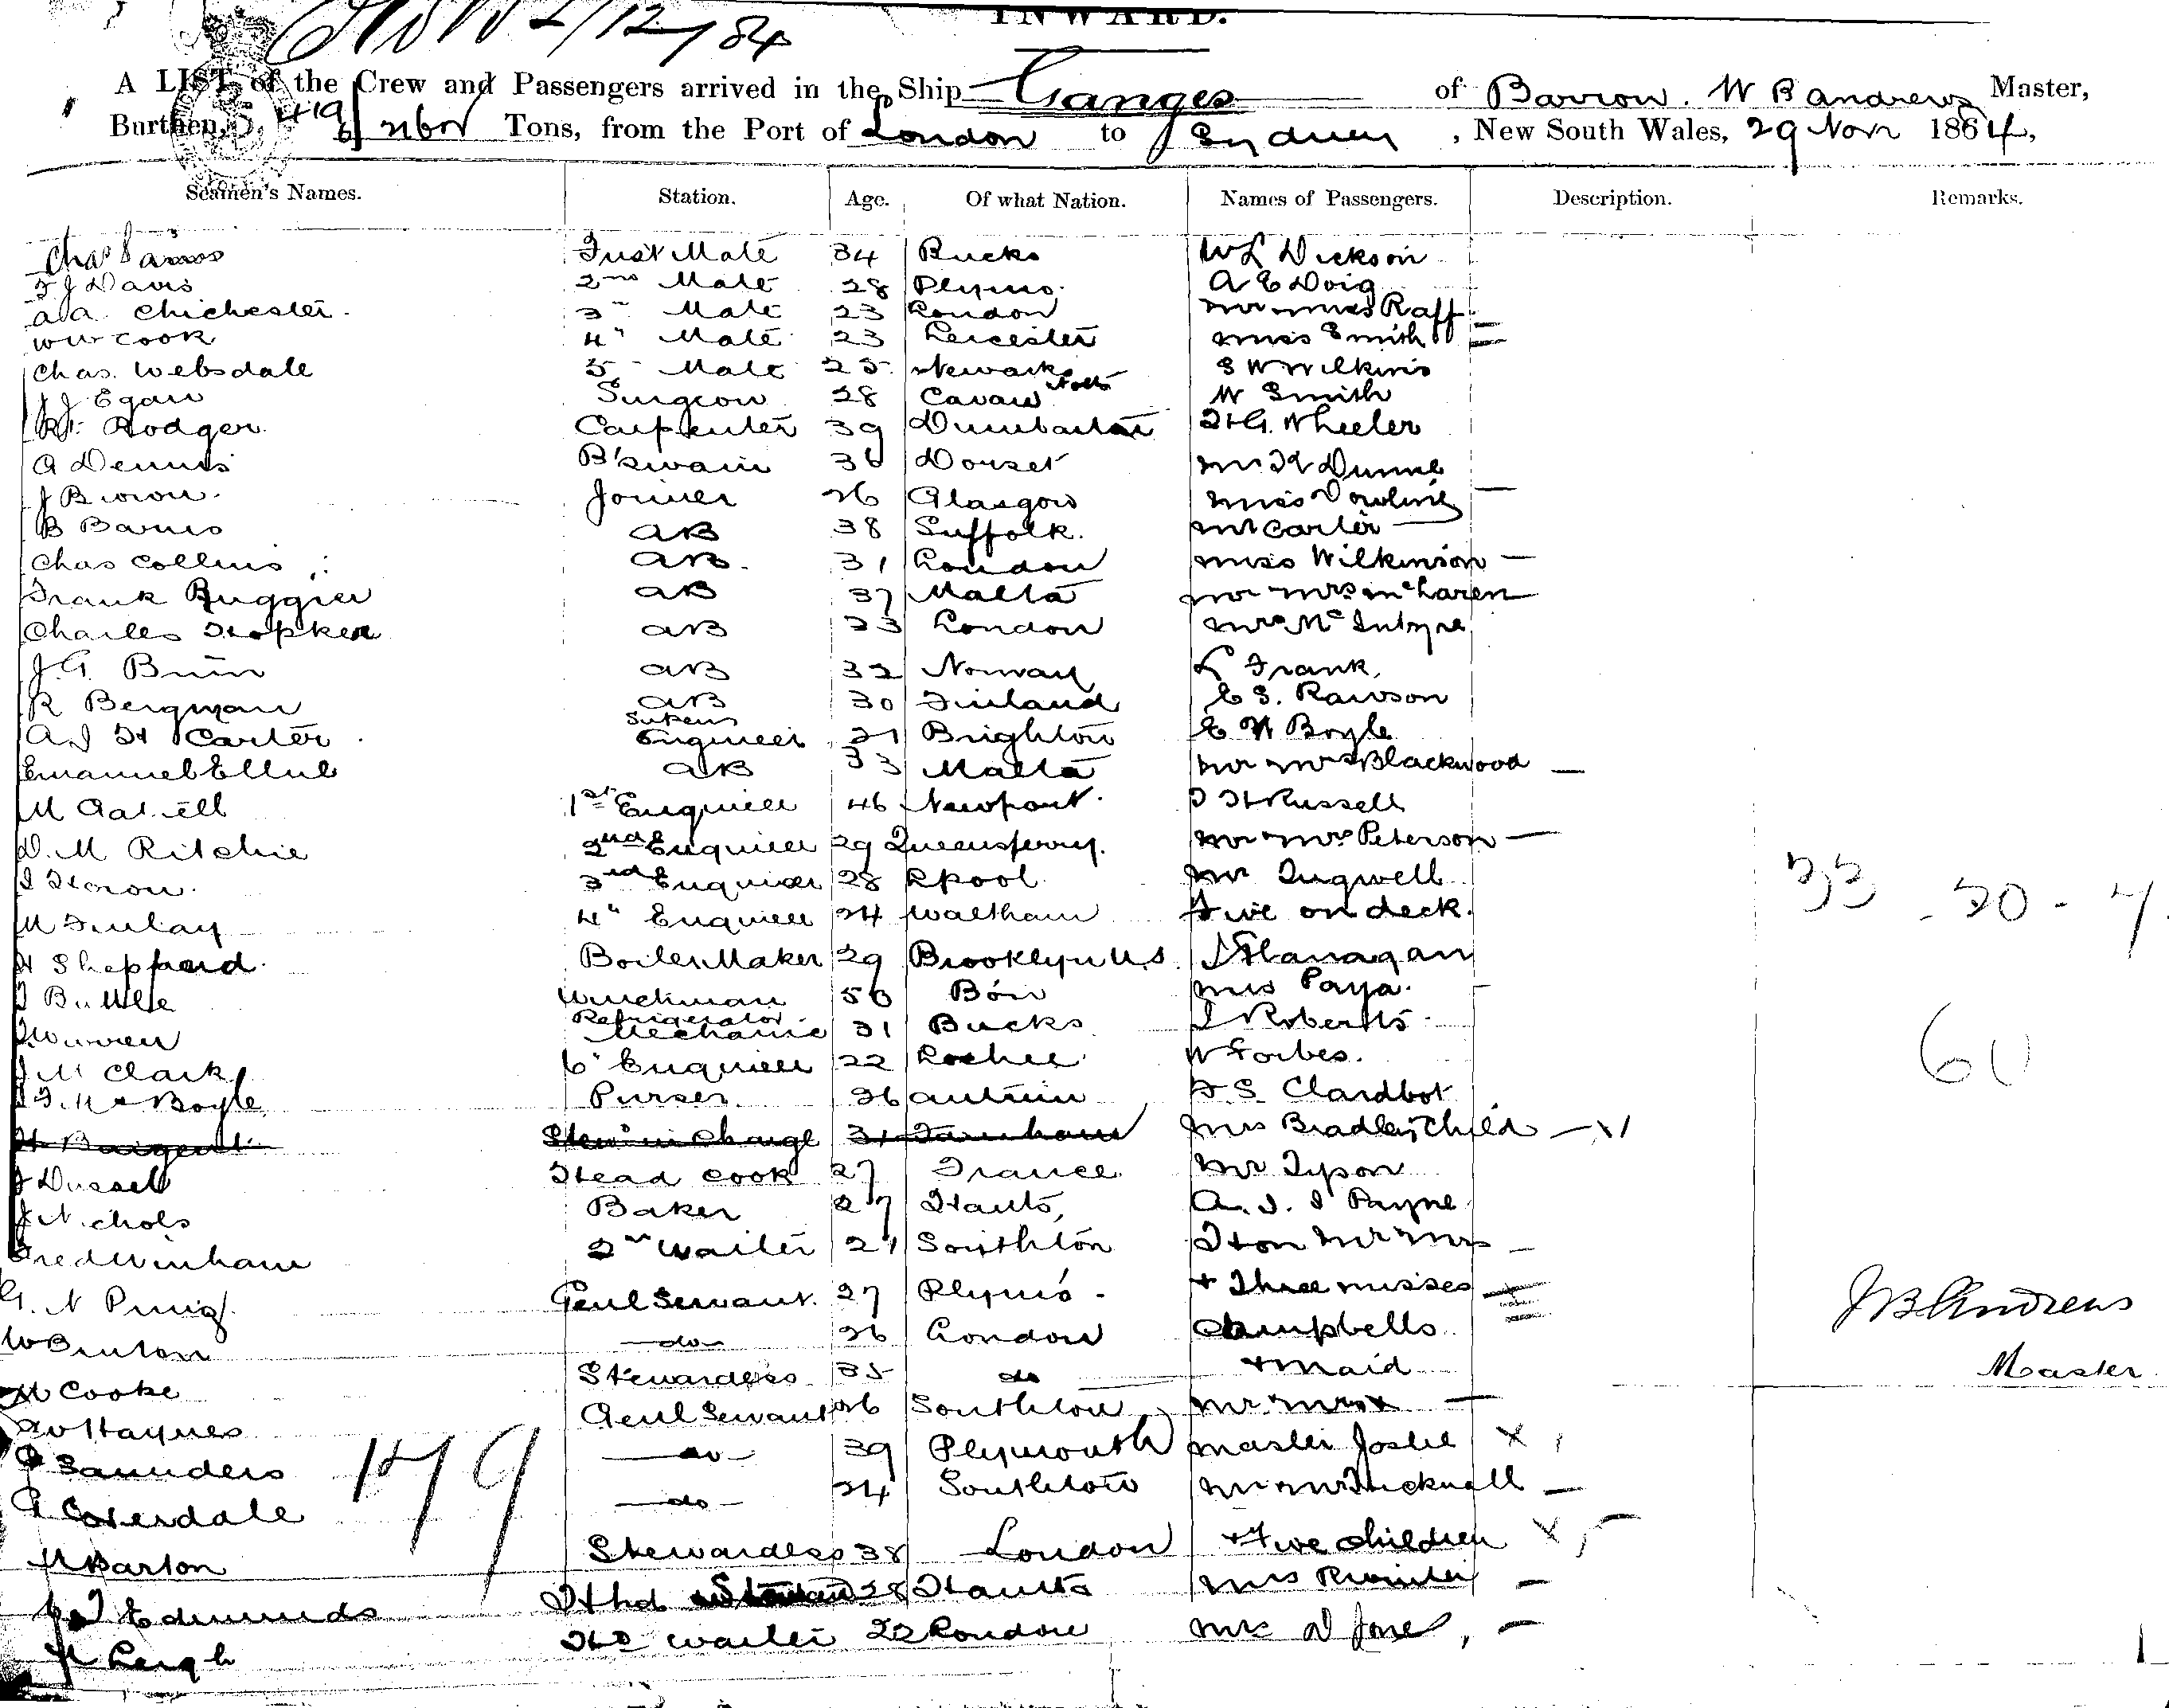 INWARD.
2/12/84
A LIST of the Crew and Passengers arrived in the Ship Ganges of Barrow. W B Andrews Master,
Burthen, Tons, from the Port of London to Sydney, New South Wales, 29 Nov 1864,
Seamen's Names. Station. Age. Of what Nation. Names of Passengers. Description. Remarks.
Chas First Mate 34 Bucks W L Dickson
F J Davis 2nd Mate 28 Plymo. A E Doig
a.a. Chichester. 3" Mate 23 London Raff
Wm Cook 4" Mate 23 Leicester Miss Smith
Chas. Websdale 5" Mate 25 Newark Notts S W Wilkins
J J Egan Surgeon 28 Cavan W Smith
Rt. Rodger Carpenter 39 Dumbarton H G. Wheeler
A Dennis B'swain 36 Dorset Dunne
J Brown. Joiner 26 Glasgow Miss Dowling
B Barns AB 38 Suffolk. Mr Carter
Chas Collins AB. 31 London Miss Wilkinson
Frank Buggier AB 37 Malta Mr Mrs McLaren
Charles Hopker AB 23 London Mrs McIntyre
J. G. AB 32 Norway L Frank,
R Bergman AB 30 Finland E S. Rawson
A J H Carter Engineer 21 Brighton E W Boyle
Emanuel Ellul AB 33 Malta Mr Mrs Blackwood
M 1st Engineer 46 Newport. J H Russell
D. M Ritchie 2nd Engineer 29 Queensferry. Mr Mrs Peterson
J Heron. 3rd Engineer 28 Lpool Mr Tugwell
M Finlay 4" Engineer 24 Waltham Five on deck.
33 - 20 - 7.
H Sheppard. Boiler Maker 29 Brooklyn U.S. J Flanagan
J Buttle Winchman 50 Mrs Paya.
Refrigerator Mechanic 31 Bucks J Roberts
J M Clark 6" Engineer 22 Lochee W Forbes.
60
McBoyle Purser 26 Antrim F. S. Clardbot
H Bargent Stewd in Charge 31 Farnham Mrs Bradley & Child
J Dussell Head Cook 27 France Mr Tyson
J Nichols Baker 27 Hants, A. J. J Payne
Fred Winham 2nd Waiter 21 Southton Hon Mr Mrs
G. N Genl Servant. 27 Plymo. + Three misses
W Bruton do 26 London Campbells
J B Andrews
M Cooke Stewardess 35 do + Maid
Master
W Haynes Genl Servant 26 Southton Mr Mrs +
P Saunders do 39 Plymouth Master Joske
179
A Coverdale do 24 Southton Mr Mrs
M Barton Stewardess 38 London + Five Children
Edmunds 28 Hants Mrs
Leigh Waiter 22 London